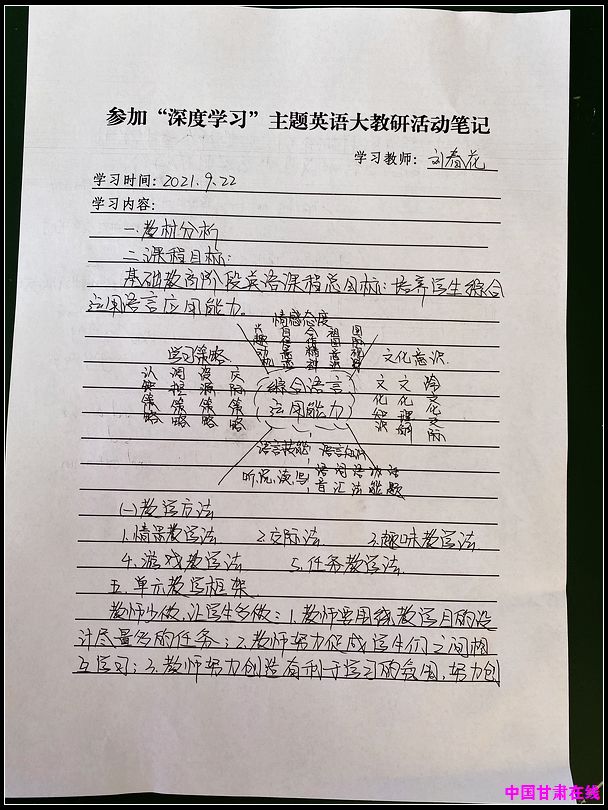 参加“深度学习”主题英语大教研活动笔记
学习教师：刘春花
学习时间：2021.9.22
学习内容：
一.教材分析
二.课程目标：
基础教育阶段英语课程总目标：培养学生综合
运用语言应用能力。
情感态度
兴趣动机 自信意志 合作精神 祖国意识 国际视野
学习策略
认知策略 调控策略 资源策略 交际策略
综合语言
运用能力
文化意识
文化知识 文化理解 跨文化交际
语言技能 语言知识
听、说、读、写
语音 词汇 语法 功能 话题
(一)教学方法
1.情景教学法 2.交际法 3.趣味教学法
4.游戏教学法 5.任务教学法
五.单元教学框架
教师少做，让学生多做：1.教师要围绕教学目的设
计尽量多的任务；2.教师努力促成学生们之间相
互学习；3.教师努力创造有利于学习的氛围，努力创
中国甘肃在线